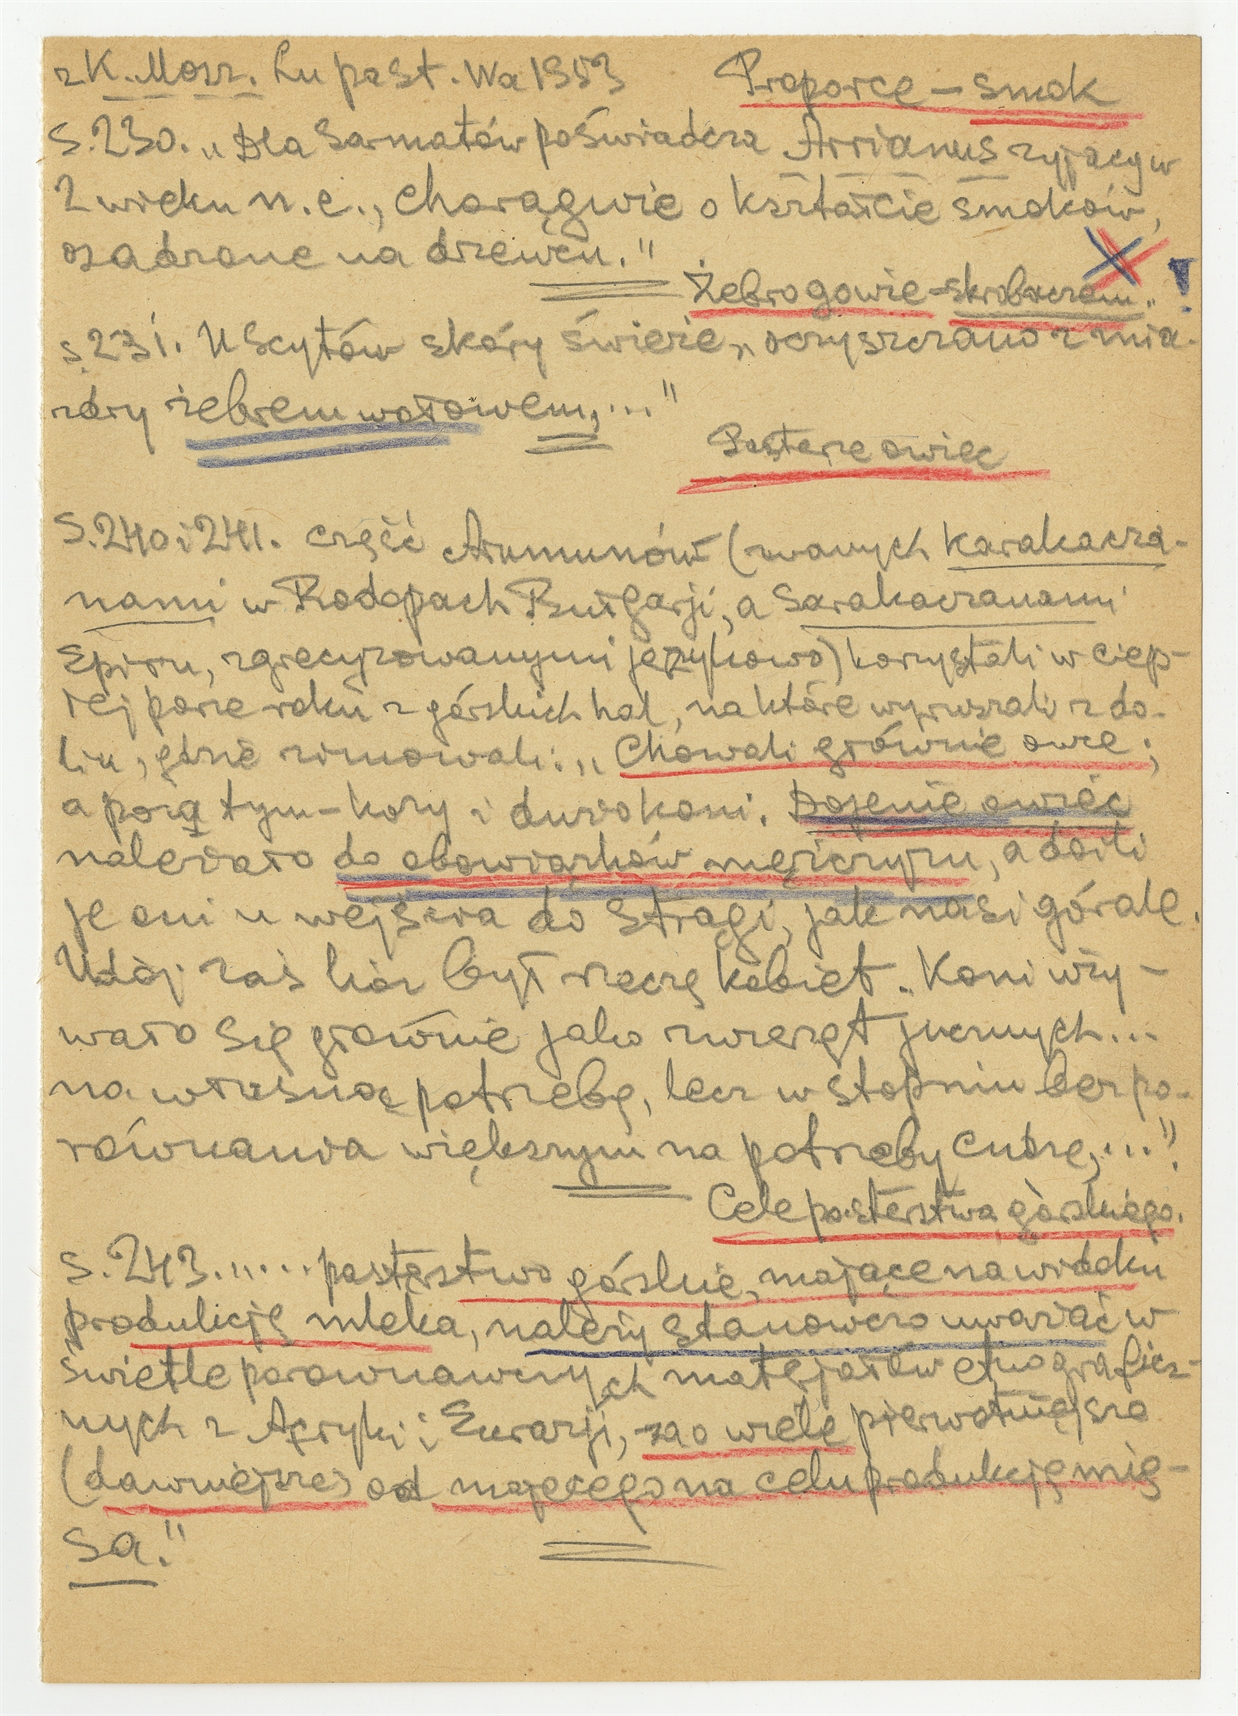 z K. Mosz. Lu past. Wa 1953 Proporce – smok
S. 230. „Dla Sarmatów poświadcza Arrianus żyjący w
2 wieku n. e., chorągwie o kształcie smoków,
osadzone na drzewcu."
Żebro gowie - skrobaczem„ !
s 231. U Scytów skóry świeże „oczyszczano z mia-
zdry żebrem wołowem,..."
Pasterze owiec
S. 240 i 241. część Arumunów (zwanych Karakacza-
nami w Rodopach Bułgarji, a Sarakaczanami
Epiru, zgrecyzowanymi językowo) korzystali w ciep-
łej porze roku z górskich hal, na które wyruszali z do-
lin, gdzie zimowali: „Chowali głównie owce;
a poza tym – kozy i dużo koni. Dojenie owiec
należało do obowiązków mężczyzn, a doili
je oni u wejścia do strągi, jak nasi górale.
Udój zaś kóz był rzeczą kobiet. Koni uży-
wało się głównie jako zwierząt jucznych...
na własną potrzebę, lecz w stopniu bez po-
równania większym na potrzeby cudze,..."
Cele pasterstwa górskiego.
S. 243. „....pasterstwo górskie, mające na widoku
produkcję mleka, należy stanowczo uważać w
świetle porównawczych materjałów etnograficz-
nych z Afryki i Eurazji, za o wiele pierwotniejsze
(dawniejsze) od mającego na celu produkcję mię-
sa."